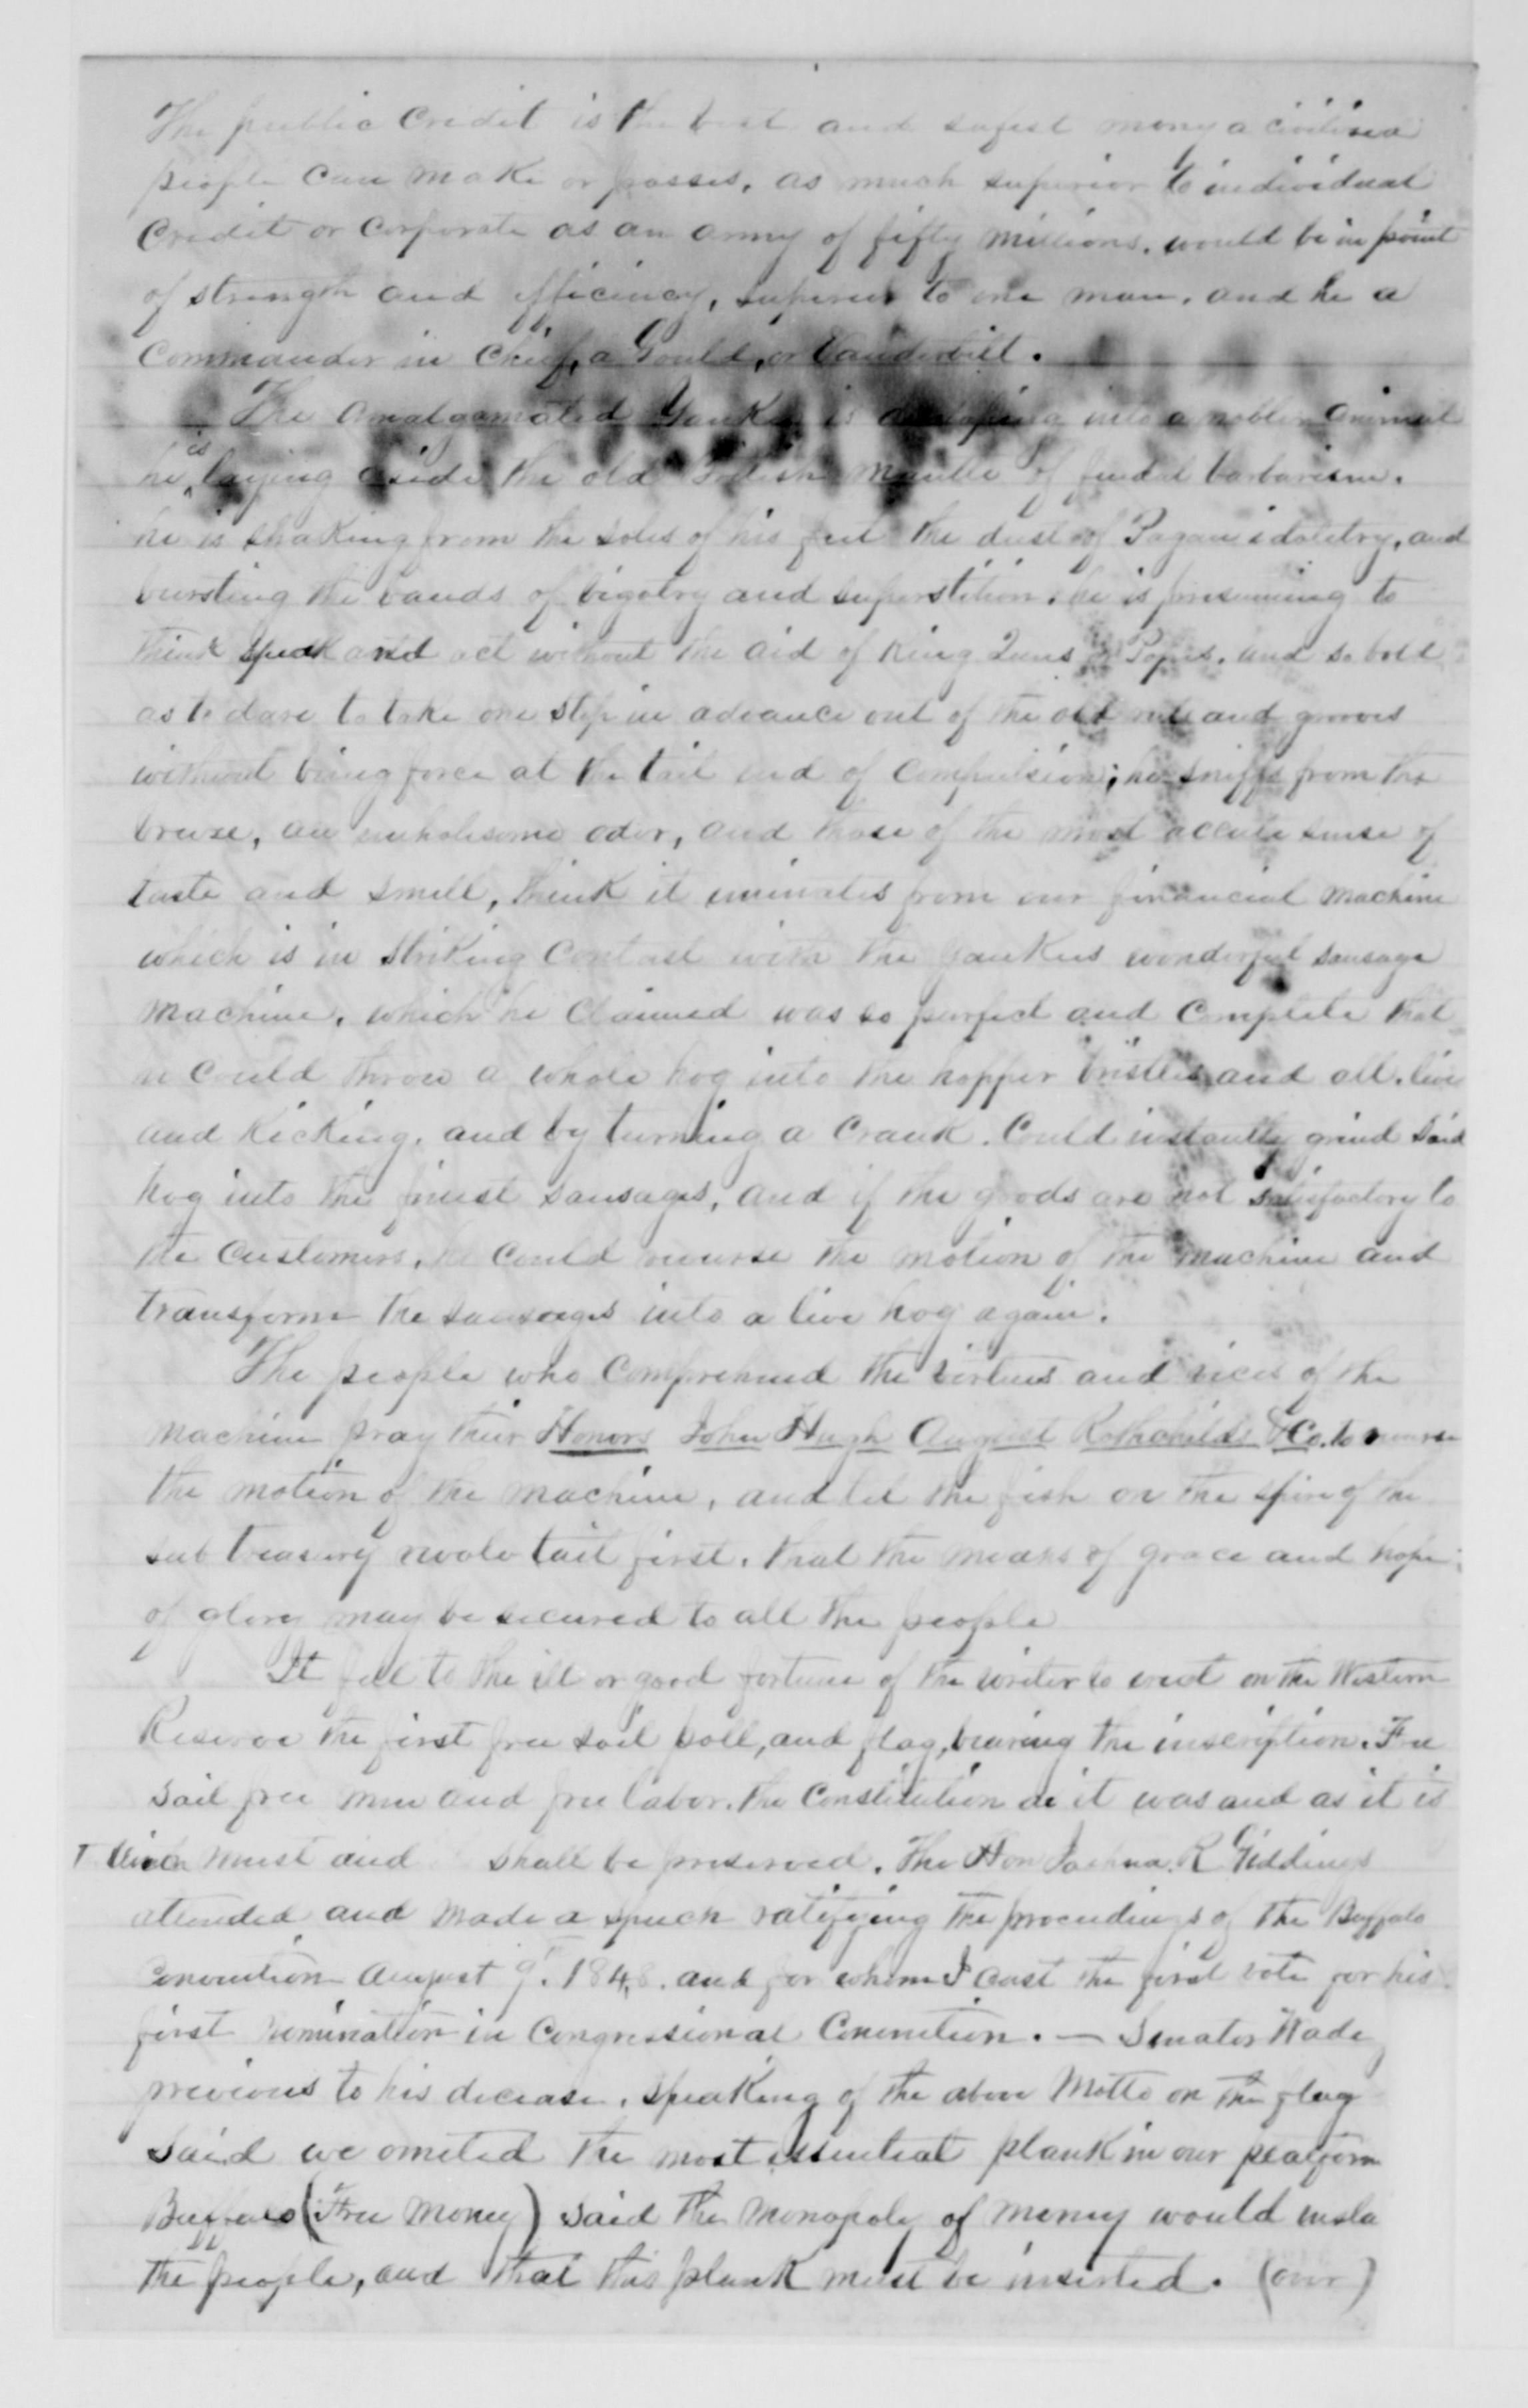 The public Credit is the best and safest mony a civilised
people can make or posses, as much superior to individual
Credit or Corporate as an army of fifty millions. would be in point
of strength and efficiency, superior to one man, and he a
Commander in Chief, a Gould, or Vanderbilt.
The Amalgamated Yankee is developing into a nobler animal
he is laying aside the old mantle of feudal barbarism.
he is shaking from the soles of his feet the dust of Pagan idolitry, and
bursting the bands of bigotry and superstition. he is presuming to
think speak and act without the aid of King Popes. and so bold
as to dare to take one step in advance out of the old ruts and grooves
without being force at the tail end of Compulsion; he sniffs from the
breeze, an unholesome odor, and those of the most accute sense of
taste and smell, think it eminates from our financial machine
which is in striking Contast with the Yankees wonderful sausage
machine, which he claimed was so perfect and Complete that
he could throw a whole hog into the hopper bristles and all. live
and kicking, and by turning a Crank. Could instantly grind said
hog into the finest sausages, and if the goods are not satisfactory to
the Customers, he could reverse the motion of the machine and
transform the sausages into a live hog again.
The people who Comprehend the virtues and vices of the
machine pray their Honors John Hugh August Rothchilds & Co. to reverse
the motion of the machine, and let the fish on the spire of the
sub treasury tail first. that the means of grace and hope
of glory may be secured to all the people
It fell to the ill or good fortune of the writer to erect on the Western
Reserve the first free soil poll, and flag, bearing the inscription. Free
soil free men and free labor. the Constitution as it was and as it is
must and shall be preserved. The Hon Joshua R Giddings
attended and made a speech ratifying the proceedings of the Buffalo
Convention August 9. 1848. and for whom I cast the first vote for his
first nomination in Congressional Convention. — Senator Wade
previous to his decease. speaking of the above Motto on the flag
said we omited the most essential plank in our platform
Buffalo (Free Money) said the monopoly of money would insla
the people, and that this plank must be inserted. (over)